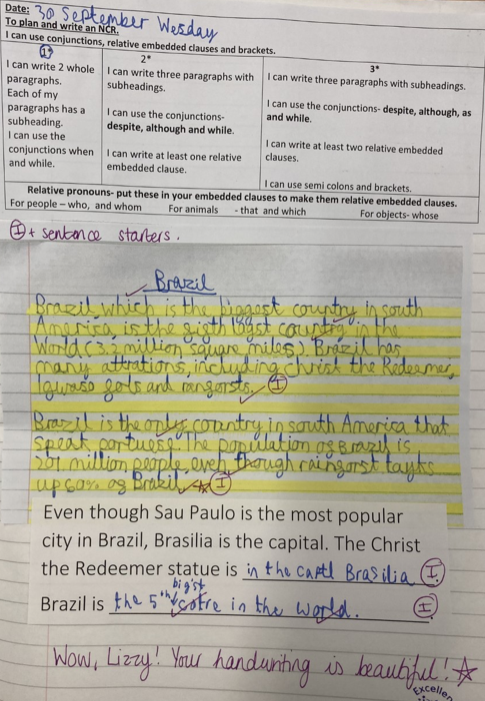 Date: 30 September Wesday
To plan and write an NCR.
I can use conjunctions, relative embedded clauses and brackets.
1*
I can write 2 whole
paragraphs.
Each of my
paragraphs has a
subheading.
I can use the
conjunctions when
and while.
2*
I can write three paragraphs with
subheadings.
I can use the conjunctions-
despite, although and while.
I can write at least one relative
embedded clause.
3*
I can write three paragraphs with subheadings.
I can use the conjunctions- despite, although, as
and while.
I can write at least two relative embedded
clauses.
I can use semi colons and brackets.
Relative pronouns- put these in your embedded clauses to make them relative embedded clauses.
For people – who, and whom For animals - that and which For objects- whose
I + sentence starters.
Brazil
Brazil which is the biggest country in south
America, is the country in the
World (3.3 million square miles). Brazil has
many attrations, including christ the Redeemer,
and I
Brazil is the only country in south America that
speak portuese. The population of Brazil is
201 million people, even though raingorst
up 60% of Brazil. I
Even though Sau Paulo is the most popular
city in Brazil, Brasilia is the capital. The Christ
the Redeemer statue is in the captl Brasilia I
Brazil is the 5th bigist cotre in the world. I
Wow, Lizzy! Your handwriting is beautiful!
Excellen